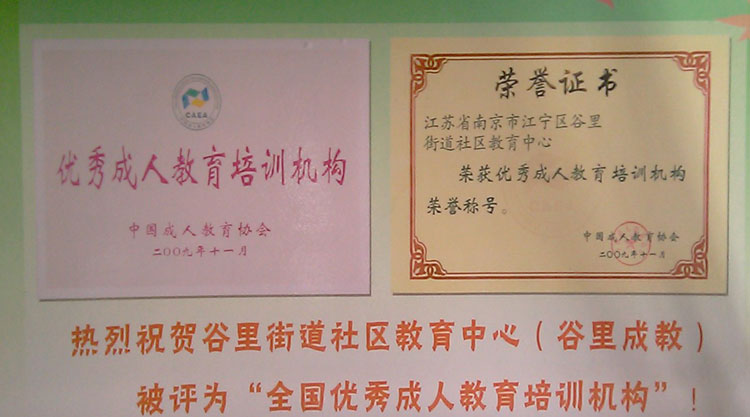 CAEA
优秀成人教育培训机构
中国成人教育协会
二〇〇九年十一月
荣誉证书
江苏省南京市江宁区谷里
街道社区教育中心
荣获优秀成人教育培训机构
荣誉称号。
中国成人教育协会
二〇〇九年十一月
热烈祝贺谷里街道社区教育中心（谷里成教）
被评为“全国优秀成人教育培训机构”！